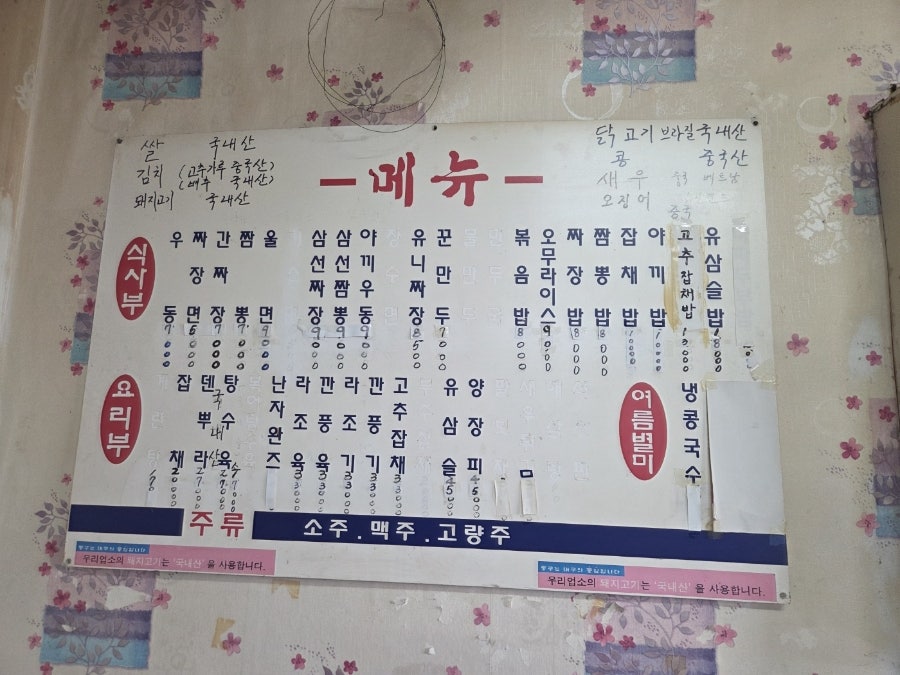 쌀 국내산
김치 (고추가루 중국산)
(배추 국내산)
돼지고기 국내산
메뉴
닭고기 브라질 국내산
콩 중국산
새우 중국 베트남
오징어
중국
식사부
우동 7000
짜장면
간짜장 7000
짬뽕
울면
삼선짜장 9000
삼선짬뽕 9000
야끼우동 9000
유니짜장 8500
꾼만두 7000
볶음밥 8000
오무라이스 9000
짜장밥 8000
짬뽕밥 8000
잡채밥 10000
야끼밥
고추잡채밥
유삼슬밥
요리부
잡채 20000
덴뿌라 27000
국내산
탕수육
난자완즈
라조육 33000
깐풍육 33000
라조기 33000
깐풍기 33000
고추잡채 33000
유삼슬 45000
양장피 45000
여름별미
냉콩국수
주류 소주.맥주.고량주
우리업소의 돼지고기는 '국내산' 을 사용합니다.
우리업소의 돼지고기는 '국내산' 을 사용합니다.